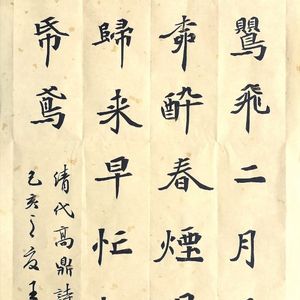 鸎飛二月
醉春煙
歸来早忙
帋鳶
清代高鼎詩
己亥之夏王